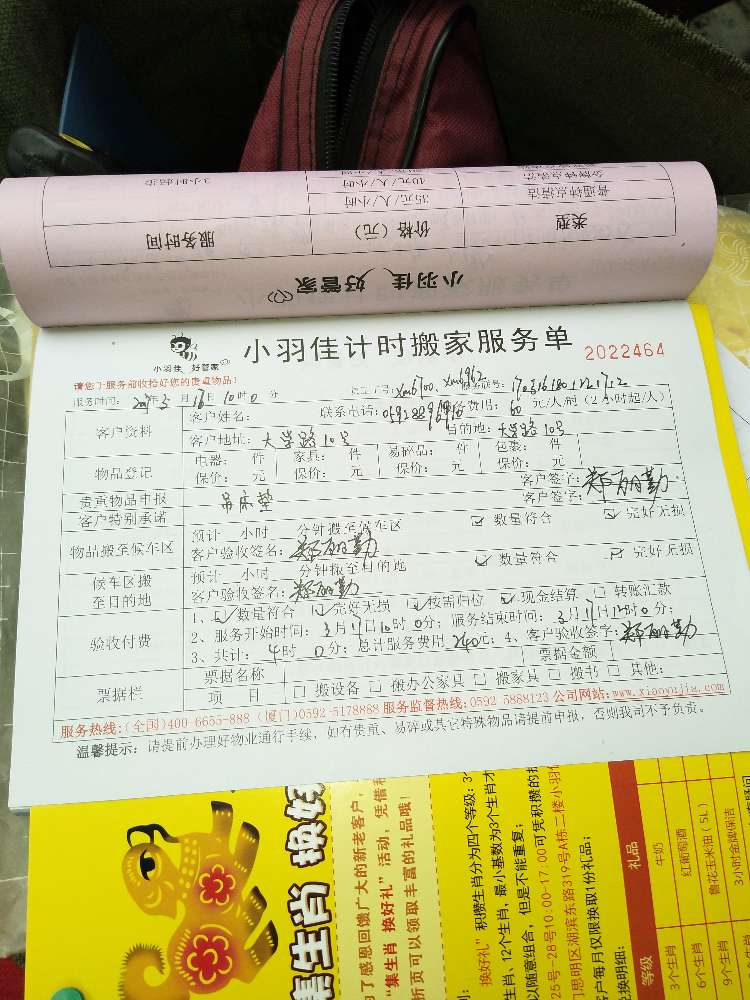 3小时起洁
40元/人/小时
普通钟点清洁
35元/人/小时
类型
价格（元）
服务时间
小羽佳 好管家
小羽佳 好管家
小羽佳计时搬家服务单
2022464
请您于服务前收拾好您的贵重物品!
服务时间: 年 3 月 日 10 时 0 分
xm6700、xm6962
客户资料
客户姓名:
联系电话:
费用: 60 元/人/时（2小时起/人）
客户地址: 大学路10号
目的地: 大学路10号
物品登记
电器: 件
家具: 件
易碎品: 件
包装: 件
保价: 元
保价: 元
保价: 元
保价: 元
贵重物品申报
吊床垫
客户签字: 郑丽勤
客户特别承诺
客户签字:
物品搬至候车区
预计 小时 分钟搬至候车区
☑ 数量符合
☑ 完好无损
客户验收签名: 郑丽勤
候车区搬
至目的地
预计 小时 分钟搬至目的地
☑ 数量符合
☑ 完好无损
客户验收签名: 郑丽勤
验收付费
1、☑ 数量符合 ☑ 完好无损 ☑ 按需归位 ☑ 现金结算 □ 转账汇款
2、服务开始时间: 3月 日10时0分; 服务结束时间: 3月 日 时0分;
3、共计: 4时 0分; 总计服务费用 240元; 4、客户验收签字: 郑丽勤
票据栏
票据名称
票据金额
项 目
□ 搬设备 □ 搬办公家具 □ 搬家具 □ 搬书 □ 其他:
服务热线:(全国)400-6655-888 (厦门)0592-5178888 服务监督热线:0592-5888123 公司网站:www.xiaoyujia.com
温馨提示: 请提前办理好物业通行手续，如有贵重、易碎或其它特殊物品请提前申报，否则我司不予负责。
集生肖 换好
为了感恩回馈广大的新老客户，
“集生肖 换好礼”活动，凭借
折页可以领取丰富的礼品哦!
换好礼”积攒生肖分为四个等级: 3个
生肖、12个生肖，最小基数为3个生肖才
以随意组合，但是不能重复;
25号-28号10:00-17:00可凭积攒的
门思明区湖滨东路319号A栋二楼小羽佳
客户每月仅限换取1份礼品;
换明细:
等级
礼品
3个生肖
牛奶
6个生肖
红葡萄酒
9个生肖
鲁花玉米油（5L）
3小时金牌保洁